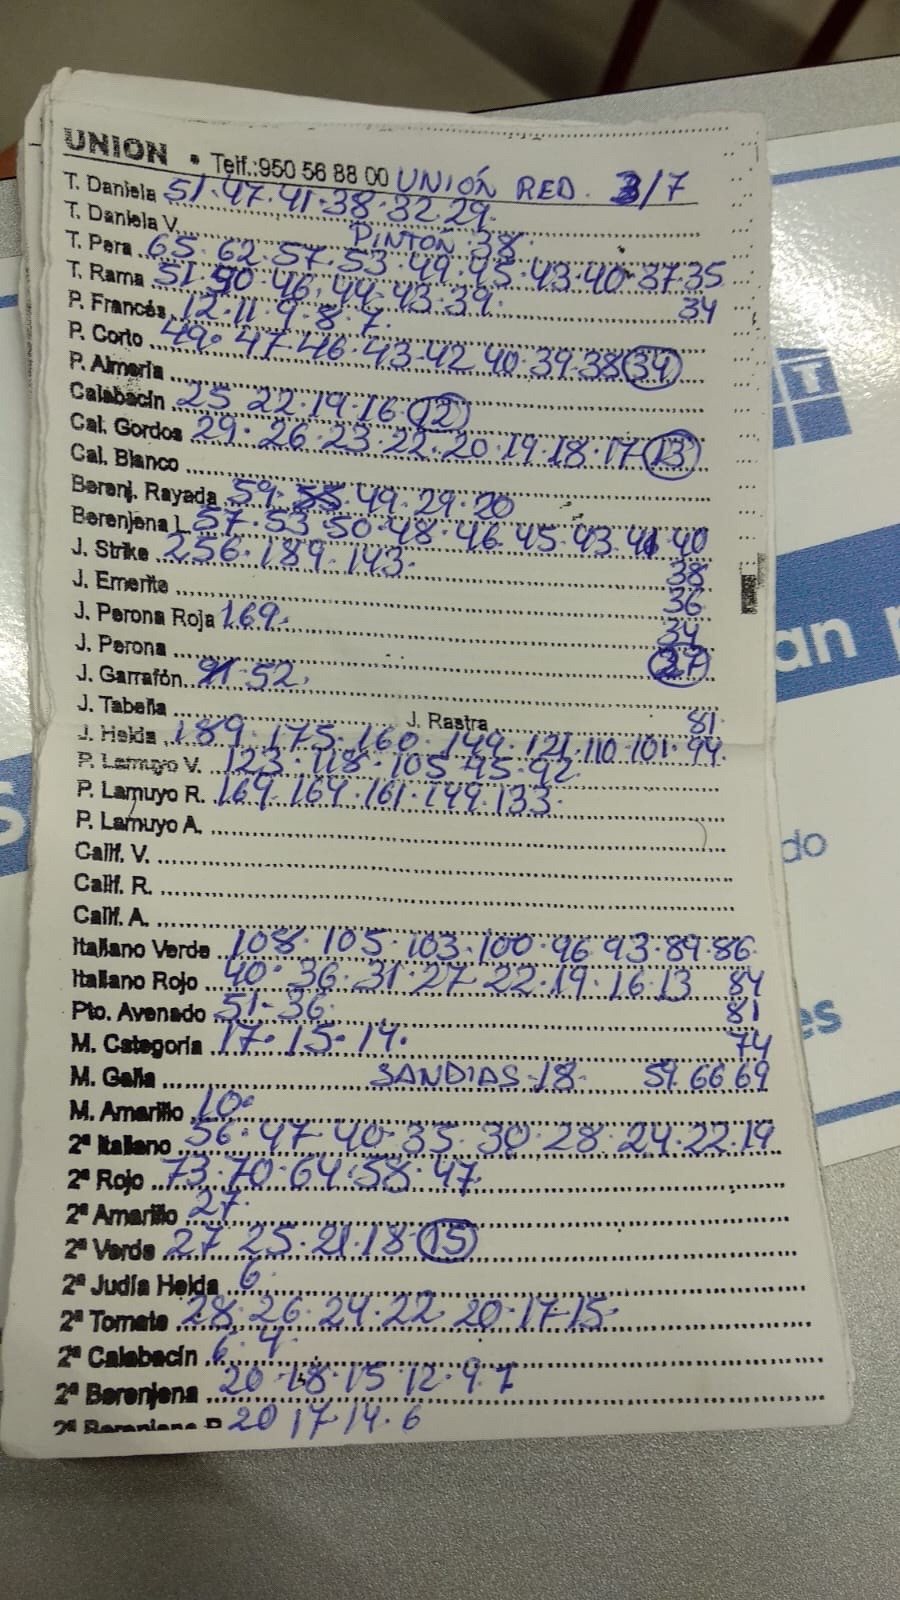 UNION • Telf.:950 56 88 00 UNIÓN RED. 3/7
T. Daniela 51·47·41·38·32·29·
T. Daniela V. PINTÓN·38·
T. Pera 65·62·57·53·49·45·43·40·37·35
T. Rama 51·50·46·44·43·39· 34
P. Francés 12·11·9·8·7·
P. Corto 49·47·46·43·42·40·39·38 34
P. Almería
Calabacín 25·22·19·16·12
Cal. Gordos 29·26·23·22·20·19·18·17·13
Cal. Blanco
Berenj. Rayada 59·55·49·29·20
Berenjena L 57·53·50·48·46·45·43·41·40
J. Strike 256·189·143· 38
J. Emerite 36
J. Perona Roja 169· 34
J. Perona 27
J. Garrafón 91·52·
J. Tabella J. Rastra 81·
J. Helda 189·175·160·149·121·110·101·94·
P. Lamuyo V. 123·118·105·95·92·
P. Lamuyo R. 169·164·161·149·133·
P. Lamuyo A.
Calif. V.
Calif. R.
Calif. A.
Italiano Verde 108·105·103·100·96·93·89·86·
Italiano Rojo 40·36·31·27·22·19·16·13 84
Pto. Avenado 51·36· 81
M. Categoria 17·15·14· 74
M. Galia SANDIAS·18· 59·66·69
M. Amarillo 10·
2ª Italiano 56·47·40·35·30·28·24·22·19
2ª Rojo 73·70·64·58·47·
2ª Amarillo 27·
2ª Verde 27·25·21·18·15
2ª Judía Helda 6·
2ª Tomate 28·26·24·22·20·17·15·
2ª Calabacín 6·4·
2ª Berenjena 20·18·15·12·9·7
2ª Berenjena R 20·17·14·6
an
do
es